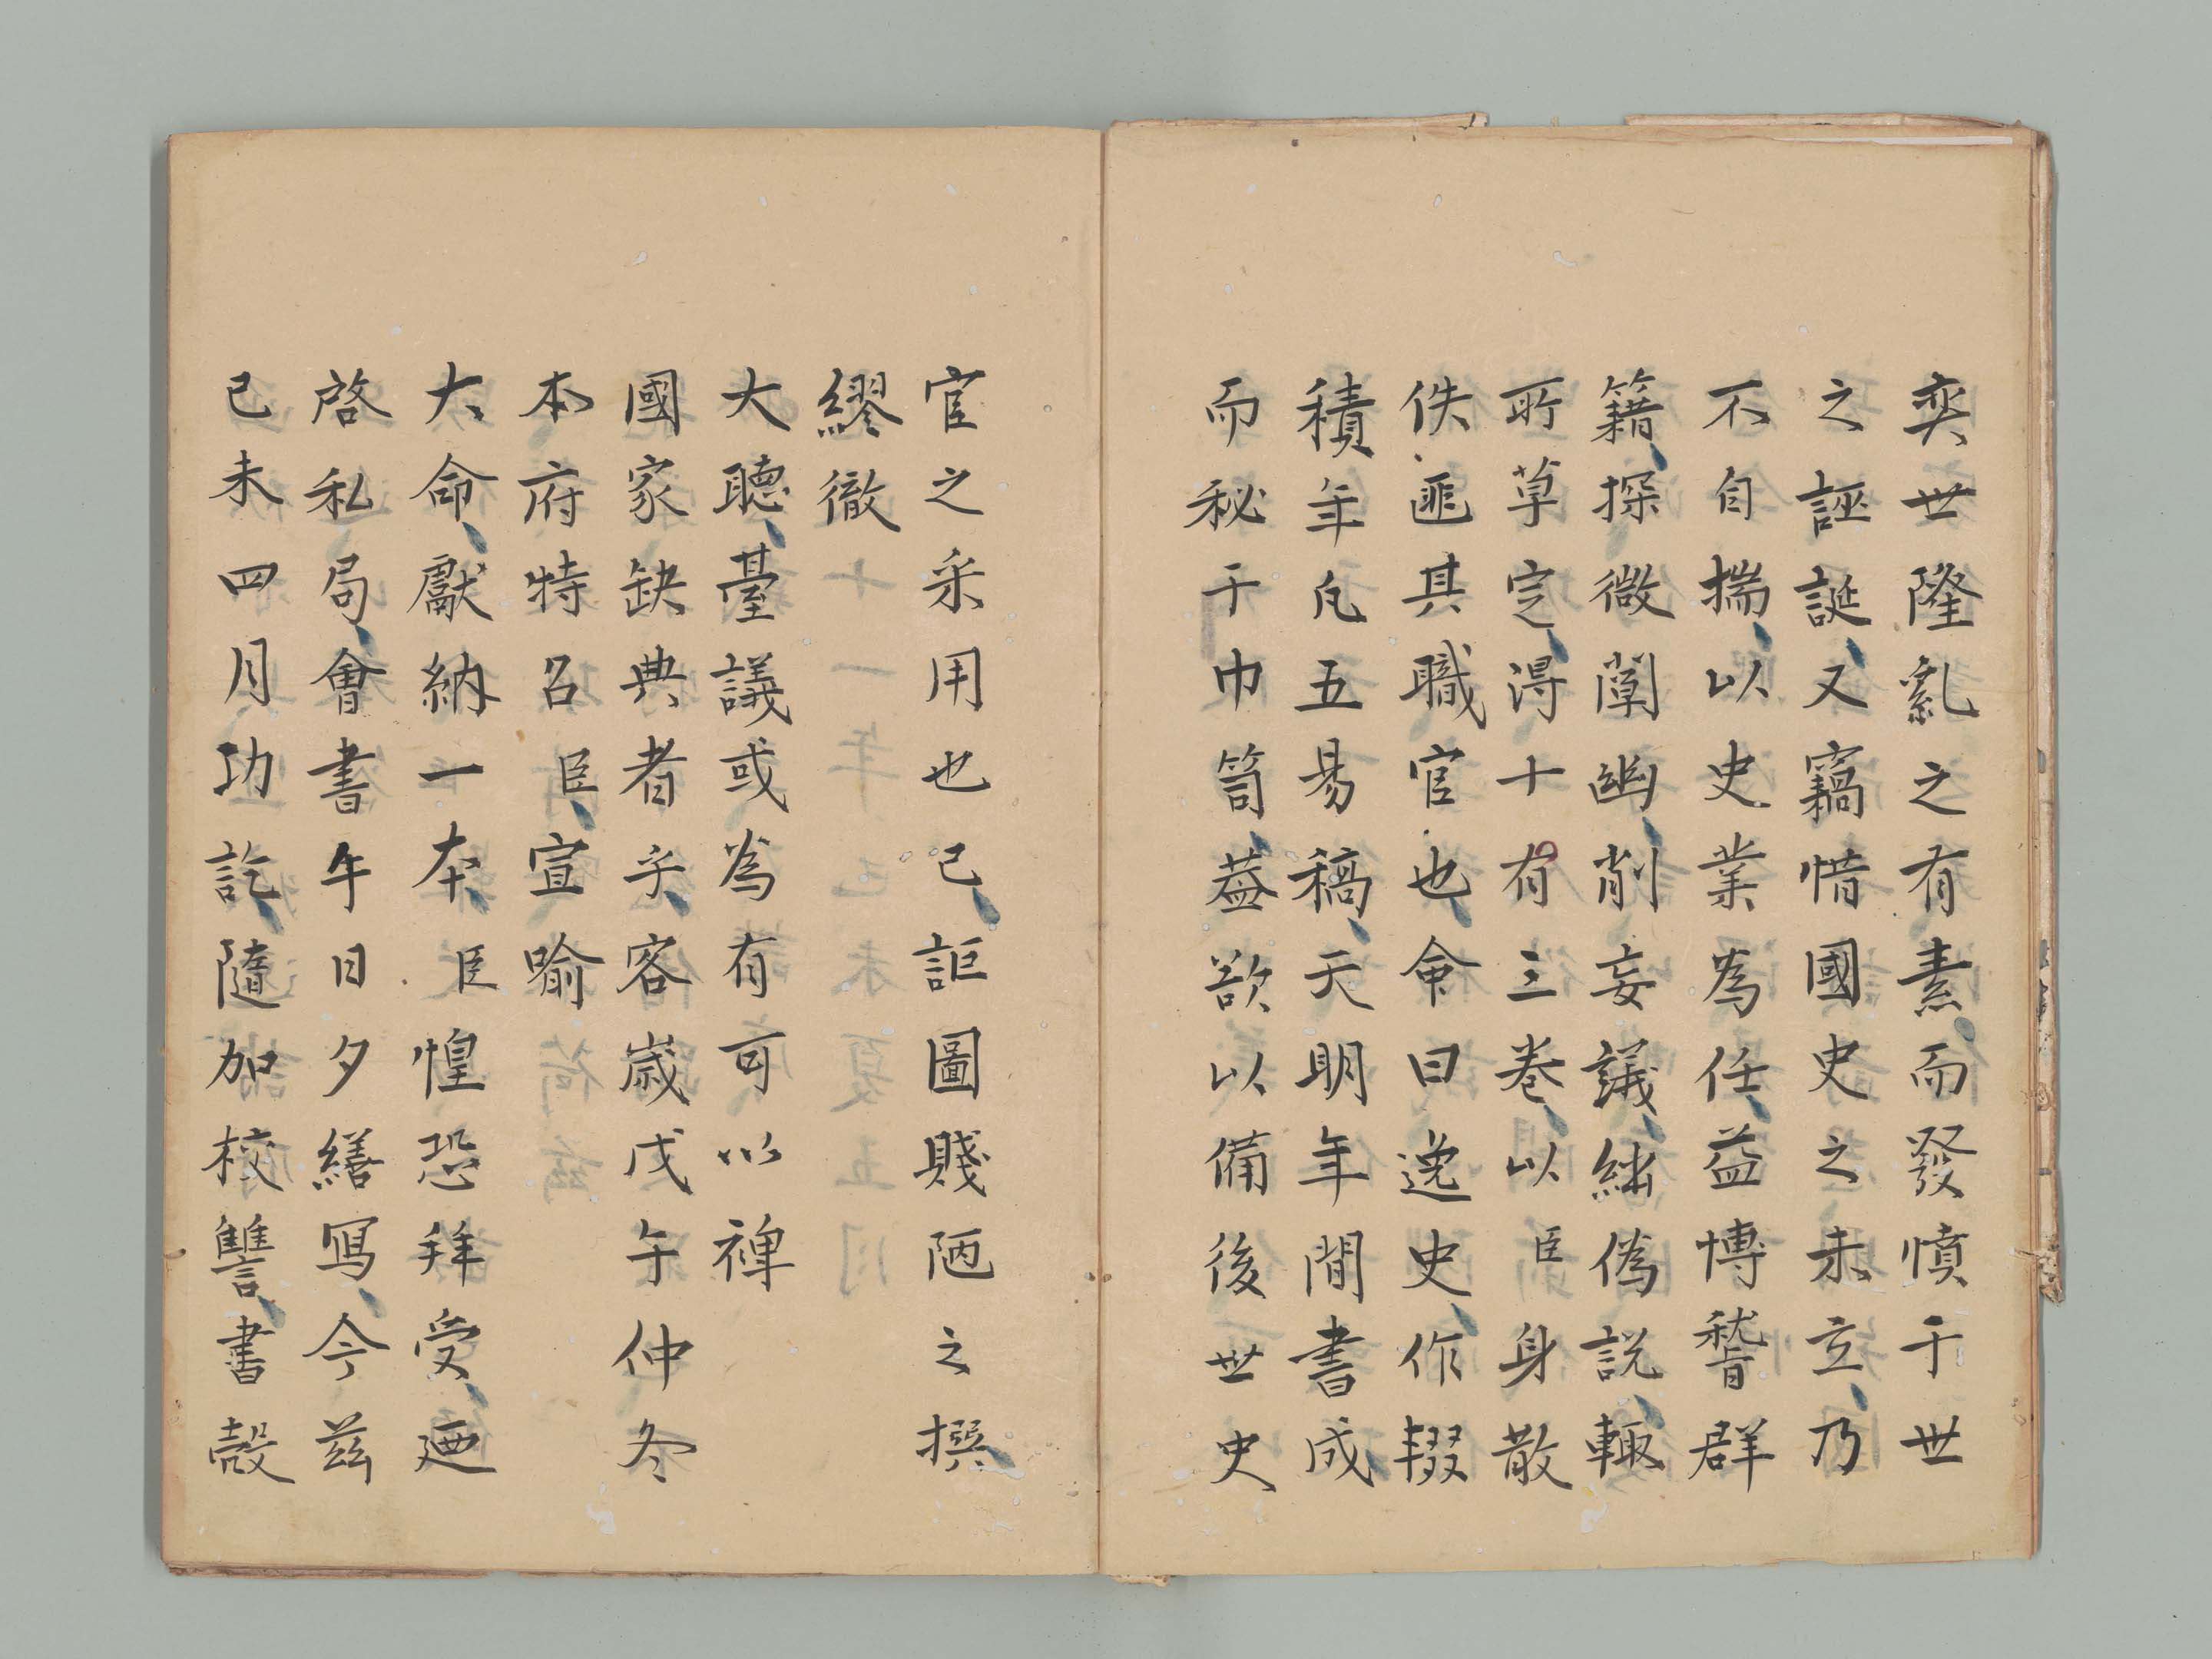 奕世隆亂之有素而發憤于世
之誣誕又竊惜國史之未立乃
不自揣以史業為任益博稽群
籍探微闡幽削妄議絀偽說輙
所草定得十有三卷以臣身散
佚匪其職官也命曰逸史作輟
積年凡五易稿天明年間書成
而秘于巾笥葢欲以備後世史
官之采用也已詎圖賤陋之撰
繆徹
大聽臺議或為有可以裨
國家缺典者乎客歲戊午仲冬
本府特召臣宣喻
大命獻納一本臣惶恐拜受廼
啓私局會書午日夕繕寫今茲
己未四月功訖隨加校讐書殼